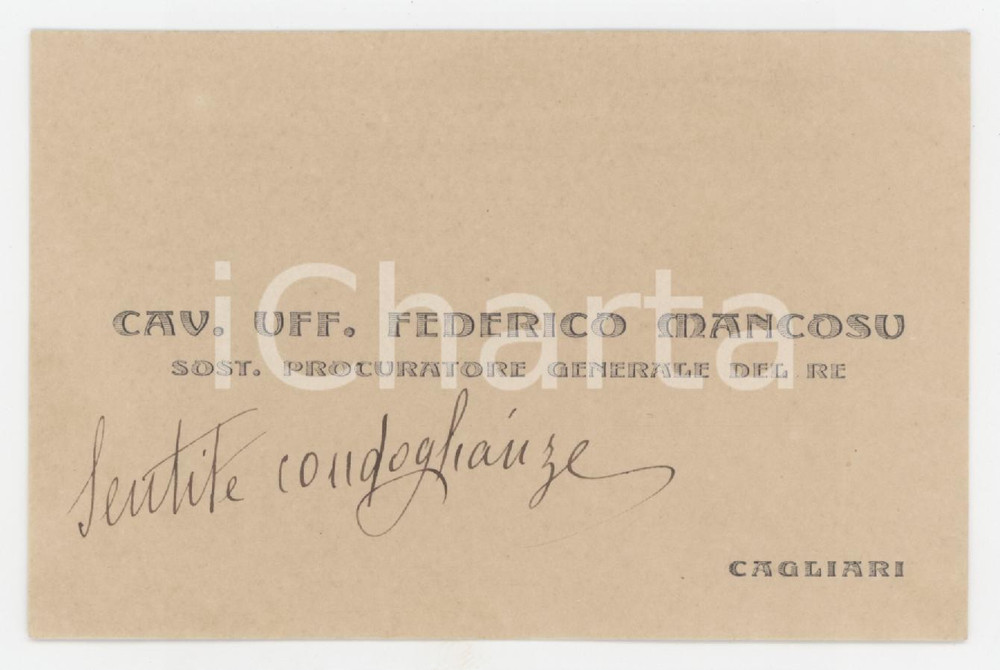 CAV. UFF. FEDERICO MANCOSU
SOST. PROCURATORE GENERALE DEL RE
Sentite condoglianze
CAGLIARI
iCharta